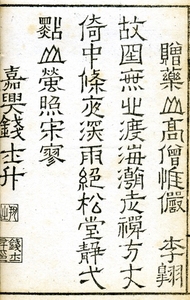 贈藥山高僧惟儼 李翱
故國無心渡海潮老禪方丈
倚中條夜深雨絕松堂靜弌
點山螢照寂寥
嘉興錢士升